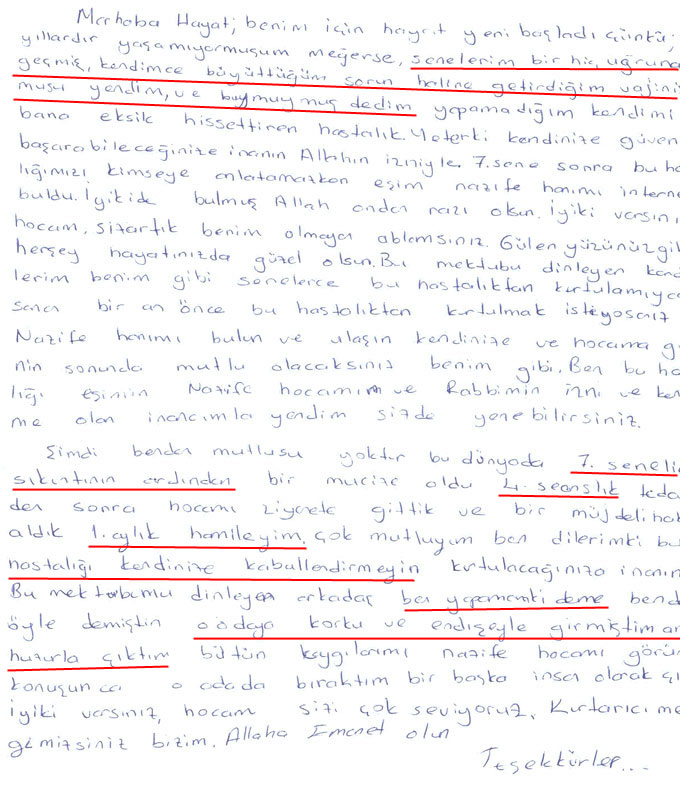 Merhaba Hayat; benim için hayat yeni başladı çünkü;
yıllardır yaşamıyormuşum meğerse, senelerim bir hiç uğruna
geçmiş, kendimce büyüttüğüm sorun haline getirdiğim vajini
musu yendim, ve buymuymuş dedim yapamadığım kendimi
bana eksik hissettiren hastalık. Yeterki kendinize güven
başarabileceğinize inanın Allahın izniyle. 7. sene sonra bu ha
lığımızı kimseye anlatamazken eşim nazife hanımı interne
buldu. İyikide bulmuş Allah ondan razı olsun. İyiki varsını
hocam, sizartık benim olmayan ablamsınız. Gülen yüzünüz gi
herşey hayatınızda güzel olsun. Bu mektubu dinleyen kar
lerim benim gibi senelerce bu hastalıktan kurtulamıyo
sanız bir an önce bu hastalıktan kurtulmak istiyosanız
Nazife hanımı bulun ve ulaşın kendinize ve hocama gü
nin sonunda mutlu olacaksınız benim gibi. Ben bu ha
lığı eşimin Nazife hocamım ve Rabbimin izni ve ken
me olan inancımla yendim sizde yenebilirsiniz.
Şimdi benden mutlusu yoktur bu dünyada 7. senelik
sıkıntının ardından bir mucize oldu 4. seanslık teda
den sonra hocamı ziyarete gittik ve bir müjdeli hab
aldık 1. aylık hamileyim. Çok mutluyum ben dilerimki bu
hastalığı kendinize kabullendirmeyin kurtulacağınıza inanın
Bu mektubumu dinleyen arkadaş ben yapamamki deme bend
öyle demiştin o odaya korku ve endişeyle girmiştim am
huzurla çıktım bütün kaygılarımı nazife hocamı görün
konuşunca o odada bıraktım bir başka insan olarak çı
İyiki varsınız, hocam sizi çok seviyoruz. Kurtarıcı me
ğimizsiniz bizim. Allaha Emanet olun
Teşekkürler...